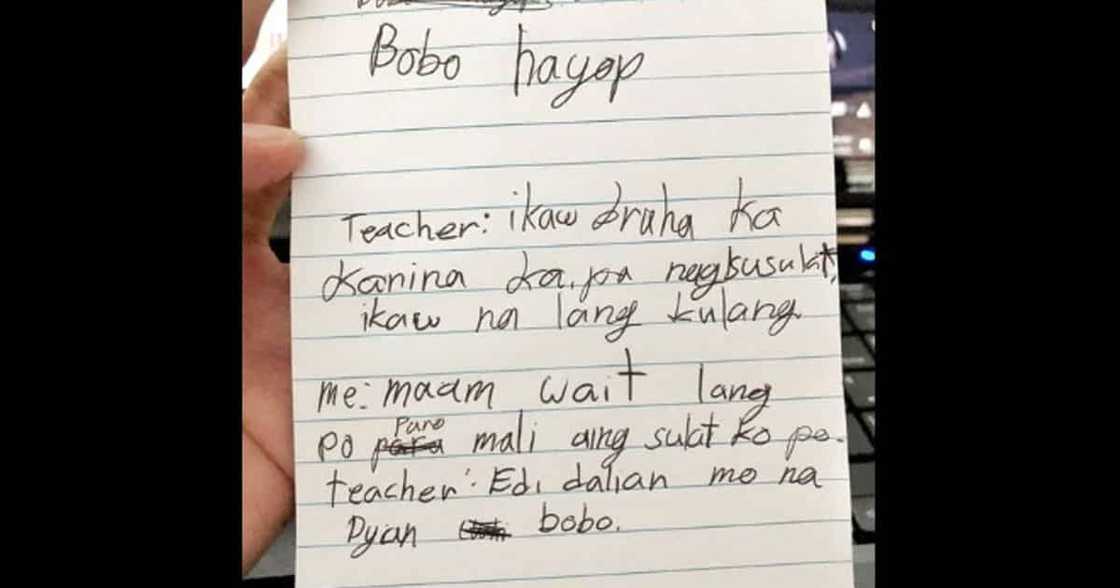 Bobo hayop
Teacher: ikaw bruha ka
kanina ka pa nagsusulat,
ikaw na lang kulang.
me: maam wait lang
po Paro mali aing sulat ko po.
teacher: Edi dalian mo na
Dyan bobo.